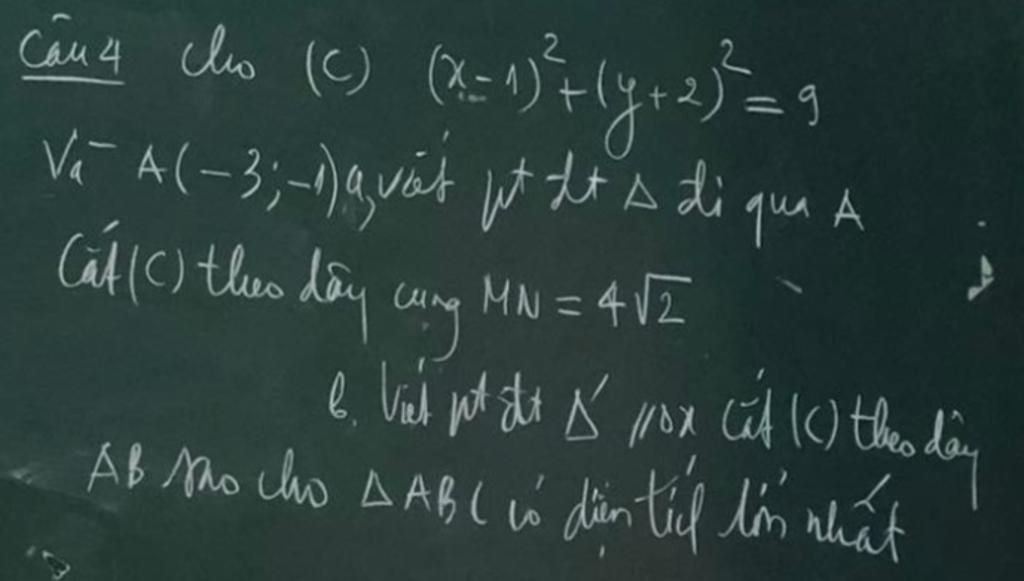 Câu 4 Cho (C) (x-1)²+(y+2)² = 9
Và A(-3;-1) a, viết pt đt Δ đi qua A
Cắt (C) theo dây cung MN = 4√2
b. Viết pt đt Δ' //ox cắt (C) theo dây
AB sao cho ΔABC có diện tích lớn nhất